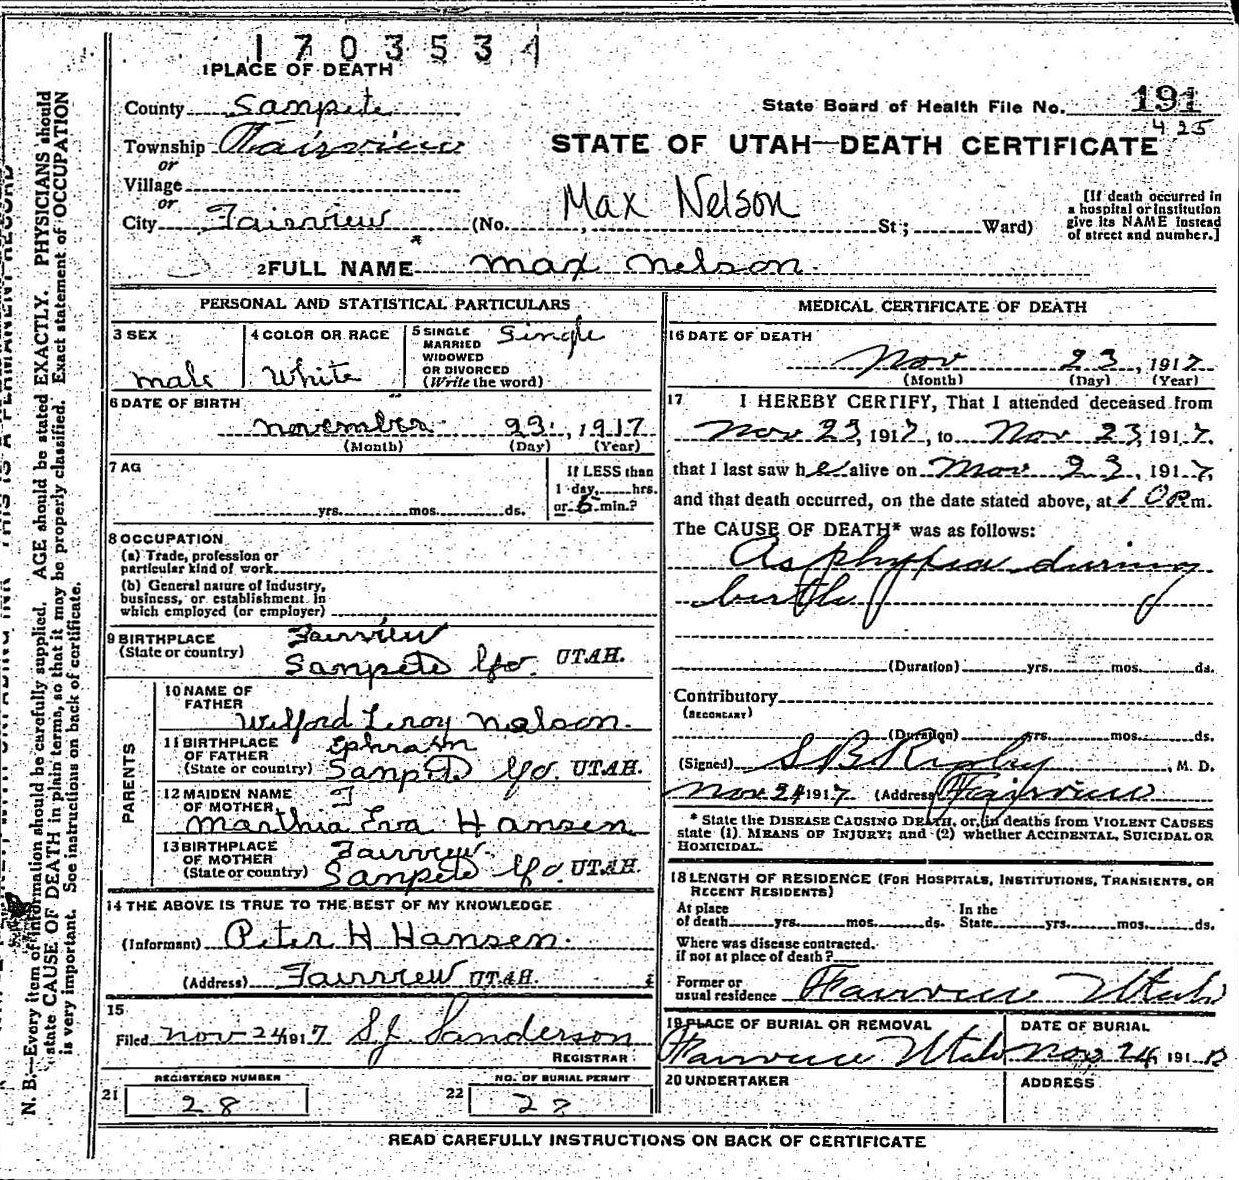 1703534
1 PLACE OF DEATH
County Sampete
State Board of Health File No. 191
425
Township Fairview
STATE OF UTAH—DEATH CERTIFICATE
or
Village
or
City Fairview (No. , St; Ward)
Max Nelson
[If death occurred in
a hospital or institution
give its NAME instead
of street and number.]
2 FULL NAME Max Nelson
PERSONAL AND STATISTICAL PARTICULARS
3 SEX
male
4 COLOR OR RACE
White
5 SINGLE
MARRIED
WIDOWED
OR DIVORCED
(Write the word)
Single
6 DATE OF BIRTH
November 23, 1917
(Month) (Day) (Year)
7 AG
yrs. mos. ds.
If LESS than
1 day, hrs.
or 5 min.?
8 OCCUPATION
(a) Trade, profession or
particular kind of work
(b) General nature of industry,
business, or establishment in
which employed (or employer)
9 BIRTHPLACE
(State or country)
Fairview
Sampete Co. UTAH.
PARENTS
10 NAME OF
FATHER
Wilford Leroy Nelson.
11 BIRTHPLACE
OF FATHER
(State or country)
Ephraim
Sanpete Co. UTAH.
12 MAIDEN NAME
OF MOTHER
Marthia Eva Hansen
13 BIRTHPLACE
OF MOTHER
(State or country)
Fairview.
Sampete Co UTAH.
14 THE ABOVE IS TRUE TO THE BEST OF MY KNOWLEDGE
(Informant) Peter H Hansen.
(Address) Fairview UTAH.
15
Filed Nov 24 1917 S.J. Sanderson
REGISTRAR
21 REGISTERED NUMBER
28
22 NO. OF BURIAL PERMIT
MEDICAL CERTIFICATE OF DEATH
16 DATE OF DEATH
Nov 23, 1917
(Month) (Day) (Year)
17 I HEREBY CERTIFY, That I attended deceased from
Nov 23, 1917, to Nov 23, 1917.
that I last saw he alive on Nov 23, 1917,
and that death occurred, on the date stated above, at 1 0 P m.
The CAUSE OF DEATH* was as follows:
Asphyxia during
birth
(Duration) yrs. mos. ds.
Contributory
(SECONDARY)
(Duration) yrs. mos. ds.
(Signed) S B Rigby, M. D.
Nov 24 1917 (Address) Fairview
* State the DISEASE CAUSING DEATH, or, in deaths from VIOLENT CAUSES
state (1) MEANS OF INJURY; and (2) whether ACCIDENTAL, SUICIDAL OR
HOMICIDAL.
18 LENGTH OF RESIDENCE (FOR HOSPITALS, INSTITUTIONS, TRANSIENTS, OR
RECENT RESIDENTS)
At place
of death yrs. mos. ds.
In the
State yrs. mos. ds.
Where was disease contracted.
if not at place of death?
Former or
usual residence Fairview Utah
19 PLACE OF BURIAL OR REMOVAL
Fairview Utah
DATE OF BURIAL
Nov 24, 191
20 UNDERTAKER
ADDRESS
READ CAREFULLY INSTRUCTIONS ON BACK OF CERTIFICATE
N. B.—Every item of information should be carefully supplied. AGE should be stated EXACTLY. PHYSICIANS should
state CAUSE OF DEATH in plain terms, so that it may be properly classified. Exact statement of OCCUPATION
is very important. See instructions on back of certificate.